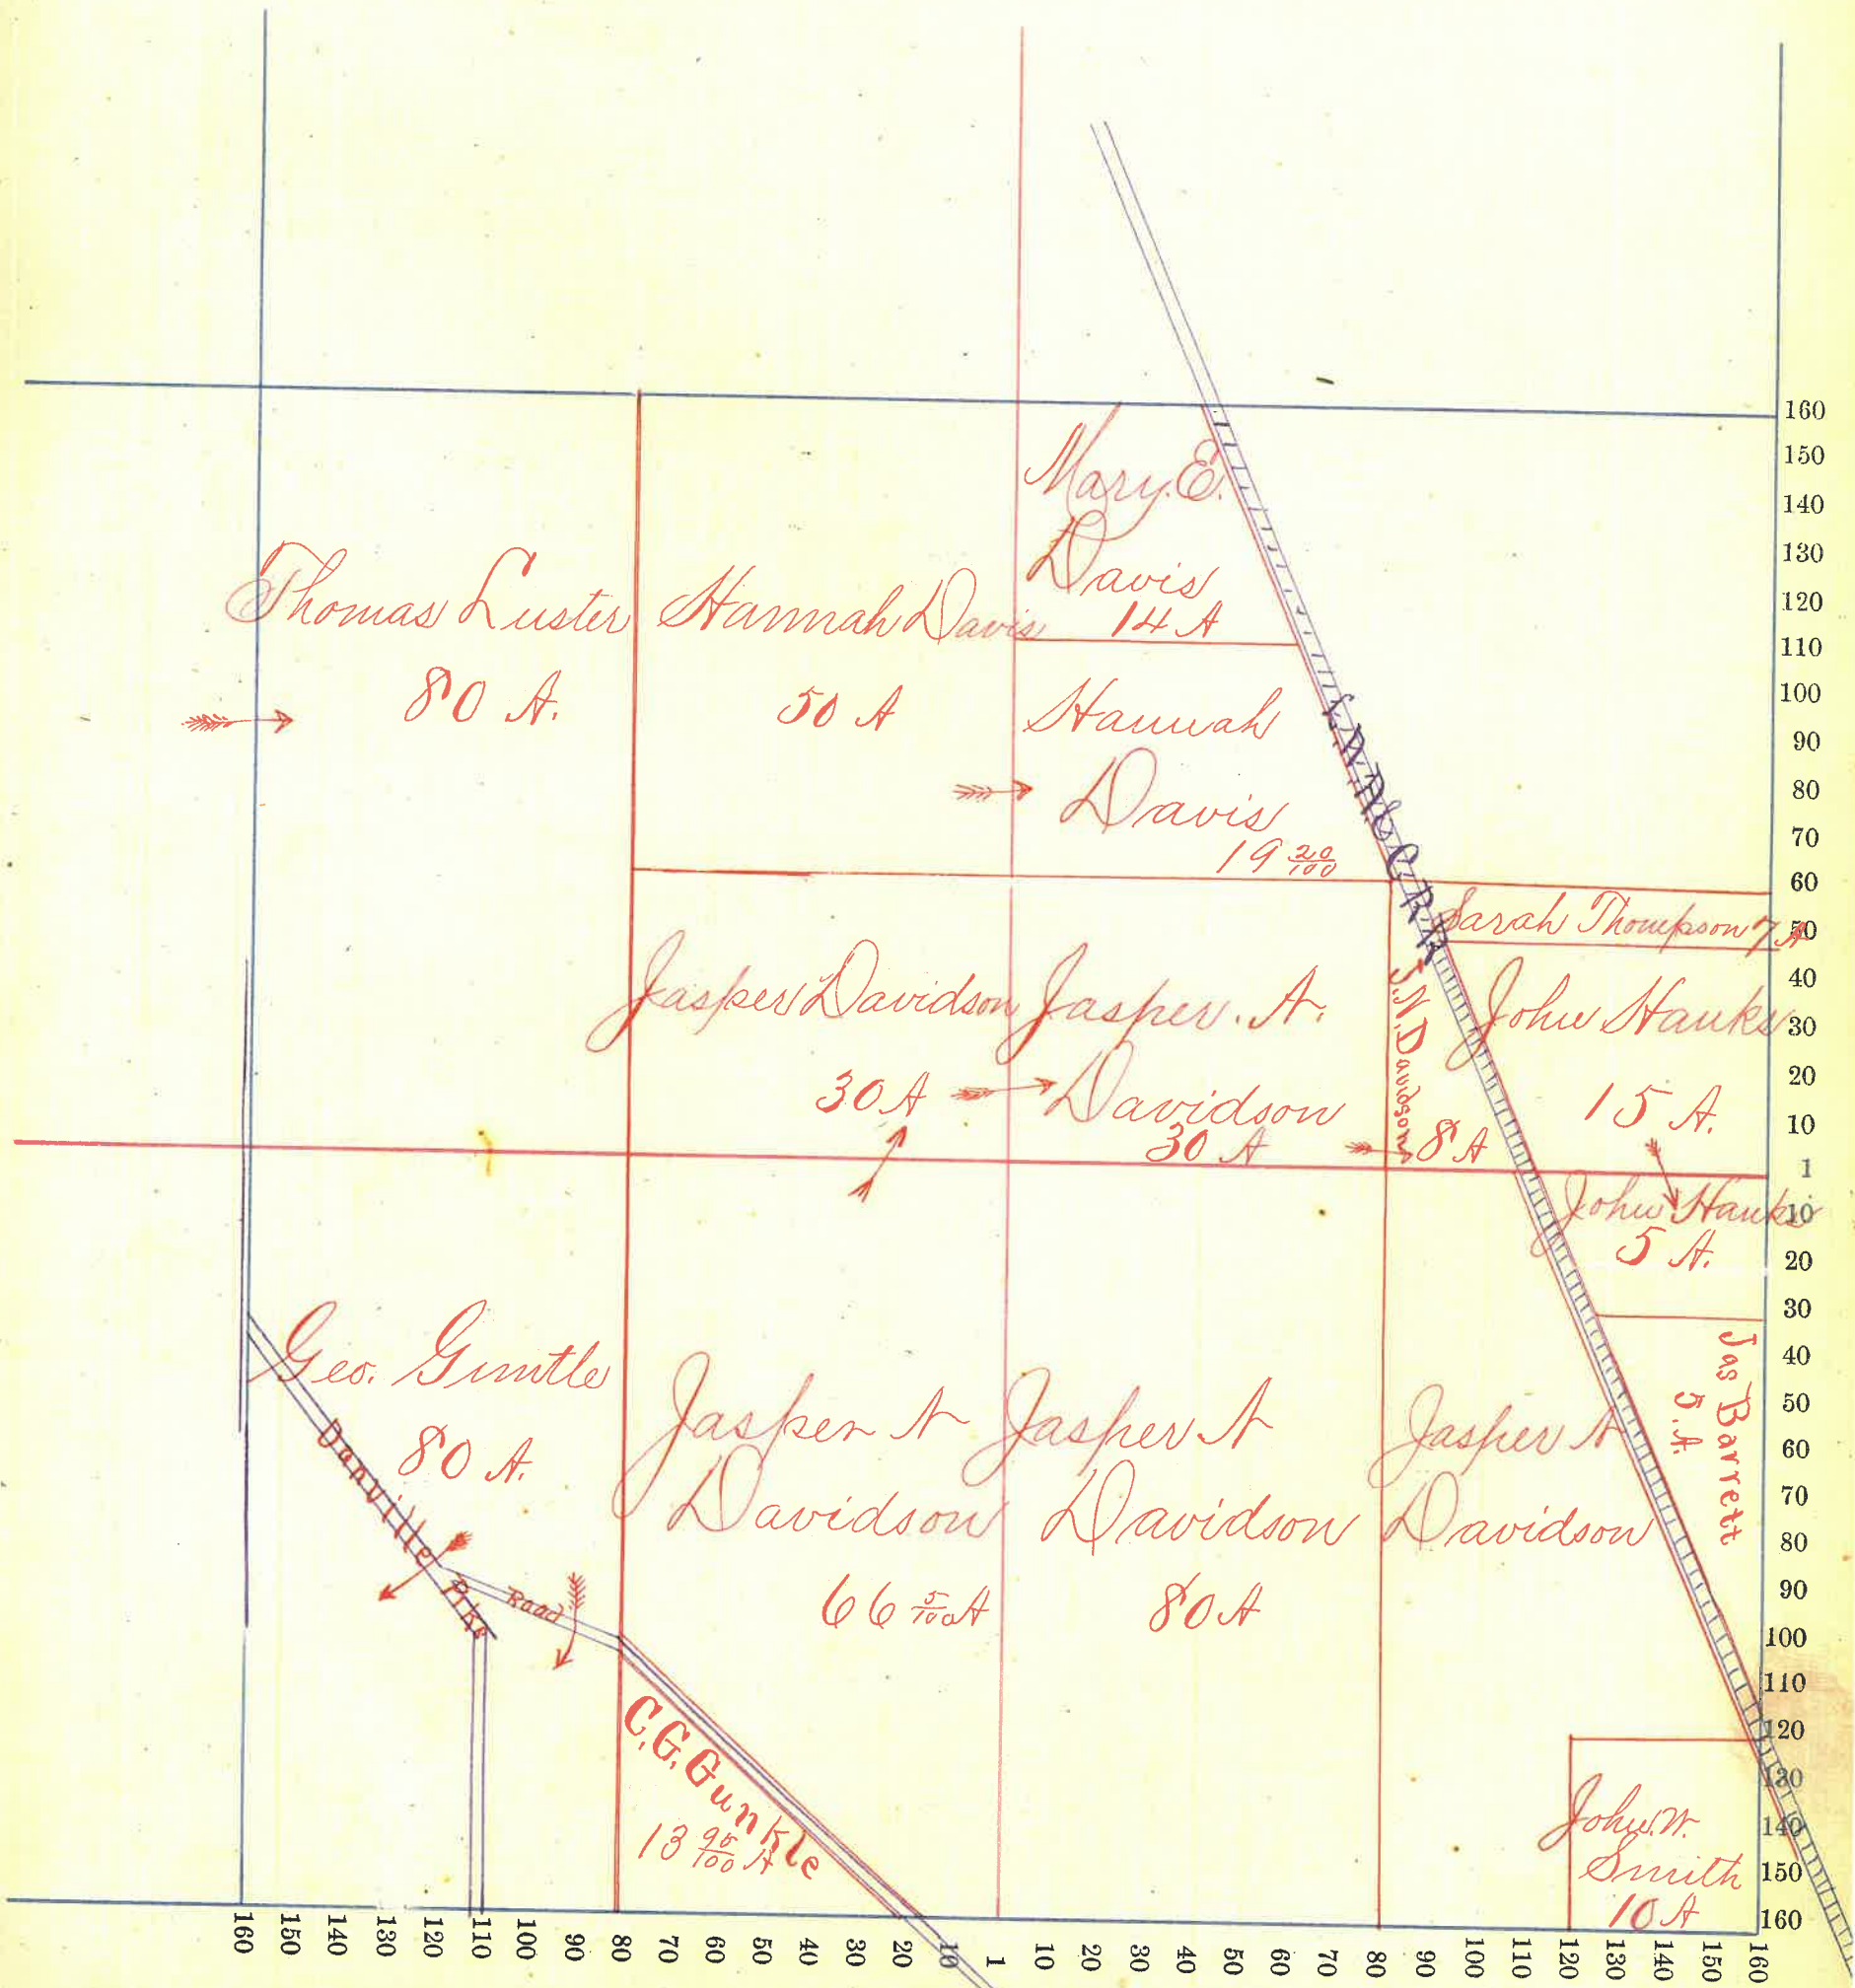 Mary. E.
Davis
14 A
Thomas Luster
80 A.
Hannah Davis
50 A
Hannah
Davis
19 20/100
L.N.A. & C. R.R.
Sarah Thompson 7 A
Jasper Davidson
30 A
Jasper. A.
Davidson
30 A
J. N. Davidson
8 A
John Hanks
15 A.
John Hanks
5 A.
Jas Barrett
5. A.
Geo. Guntle
80 A.
Danville Pike
Road
Jasper A
Davidson
66 5/100 A
Jasper A
Davidson
80 A
Jasper A
Davidson
C. G. Gunkle
13 95/100 A
John. W.
Smith
10 A
160
150
140
130
120
110
100
90
80
70
60
50
40
30
20
10
1
10
20
30
40
50
60
70
80
90
100
110
120
130
140
150
160
160 150 140 130 120 110 100 90 80 70 60 50 40 30 20 10 1 10 20 30 40 50 60 70 80 90 100 110 120 130 140 150 160